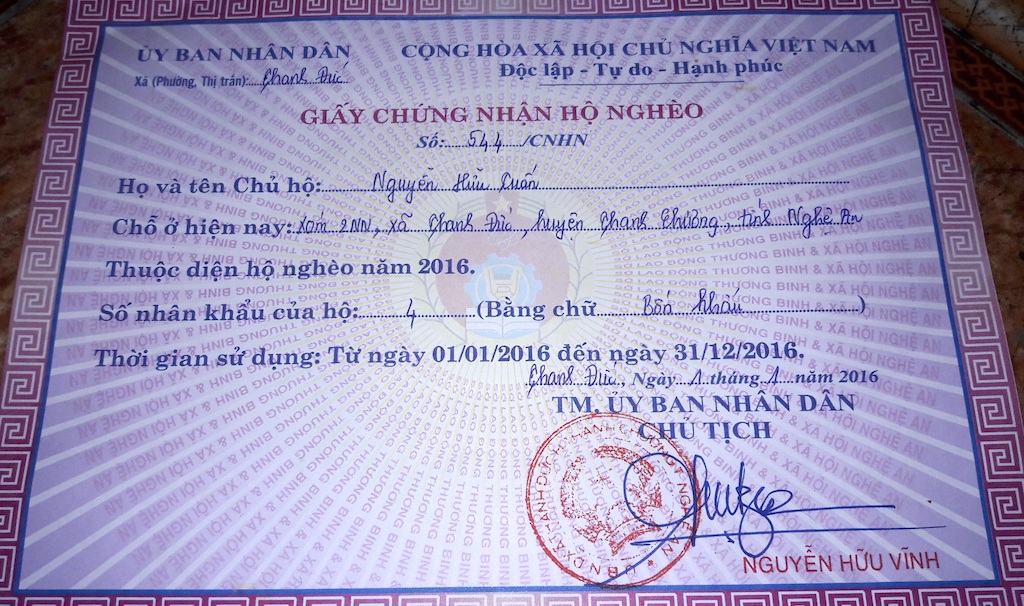 ỦY BAN NHÂN DÂN
Xã (Phường, Thị trấn): Thanh Đức
CỘNG HÒA XÃ HỘI CHỦ NGHĨA VIỆT NAM
Độc lập - Tự do - Hạnh phúc
GIẤY CHỨNG NHẬN HỘ NGHÈO
Số: 544 /CNHN
Họ và tên Chủ hộ: Nguyễn Hữu Xuấn
Chỗ ở hiện nay: Xóm 2NN, xã Thanh Đức, huyện Thanh Chương, tỉnh Nghệ An
Thuộc diện hộ nghèo năm 2016.
Số nhân khẩu của hộ: 4 (Bằng chữ Bốn khẩu)
Thời gian sử dụng: Từ ngày 01/01/2016 đến ngày 31/12/2016.
Thanh Đức, Ngày 1 tháng 1 năm 2016
TM. ỦY BAN NHÂN DÂN
CHỦ TỊCH
NGUYỄN HỮU VĨNH